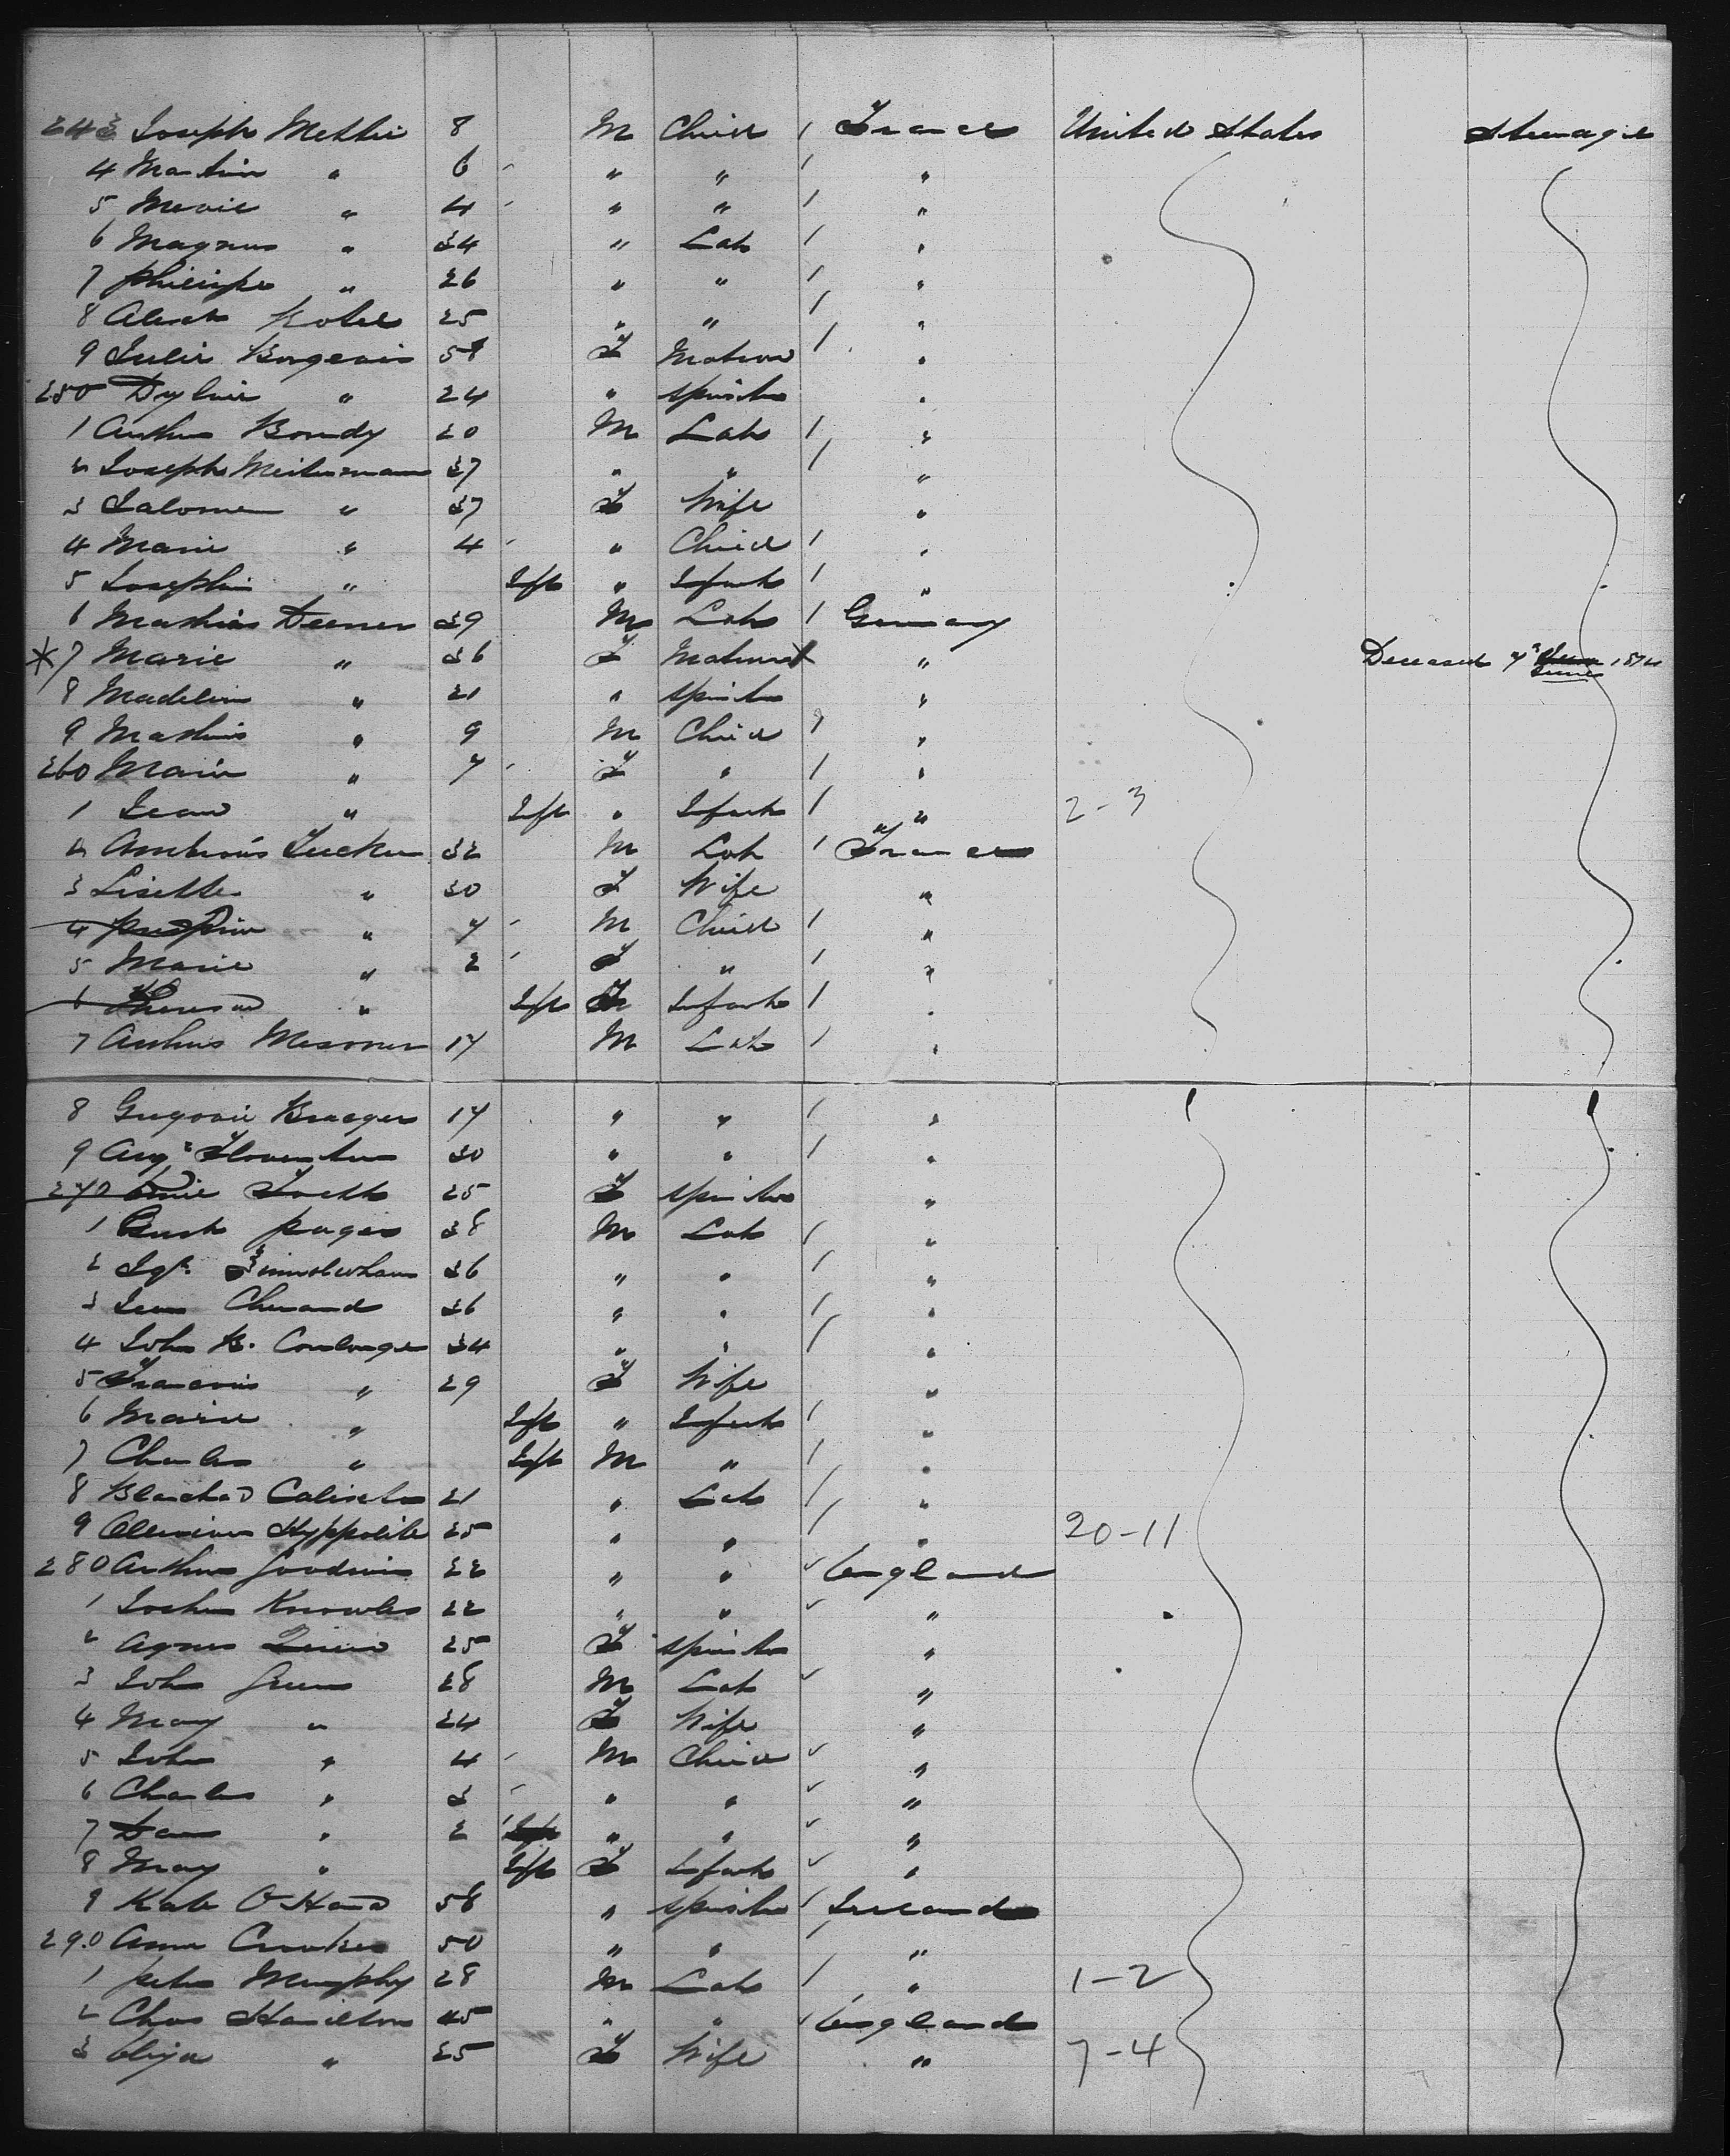 243 Joseph Methie 8 M Child / France United States Steerage
4 Martin " 6 - " " / "
5 Marie " 4 - " " / "
6 Magnus " 34 " Lab / "
7 Philippe " 26 " " / "
8 25 " " / "
9 Julie Bourgeois F Matron / "
250 " 24 " Spinster "
1 Arthur Bondy 20 M Lab / "
2 Joseph Meiterman 37 " " / "
3 Salome " 37 F Wife "
4 Marie " 4 - " Child / "
5 Josephine " Inft " Infant / "
6 Mathias Deener 39 M Lab / Germany
* 7 Marie " 36 F Matron X " Deceased 7th June
8 Madeline " 21 " Spinster "
9 Mathias " 9 M Child / "
260 Marie " 7 - F " / "
1 Jean " Inft " Infant / " 2-3
2 Ambrois Fucker 32 M Lab / France
3 Lisette " 30 F Wife "
4 " 7 - M Child / "
5 Marie " 2 - F " / "
6 Theresa " Inft Infant / "
7 Arthur 17 M Lab / "
8 Gregoire Kraeger 17 " " / "
9 30 " " / "
270 25 F Spinster "
1 Pages 38 M Lab / "
2 36 " " / "
3 Jean 36 " " / "
4 John B. Coulonge 34 " " / "
5 Francois " 29 F Wife "
6 Marie " Inft " Infant / "
7 Charles " Inft M " / "
8 Blachad 21 " Lab / "
9 Hyppolite 25 " " / " 20-11
280 Arthur Goodwin 22 " " ✓ England
1 Knowles 22 " " ✓ "
2 Agnes 25 F Spinster "
3 John Green 28 M Lab ✓ "
4 Mary " 24 F Wife "
5 John " 4 - M Child ✓ "
6 Charles " 3 - " " ✓ "
7 Dan " 2 " " ✓ "
8 Mary " Inft F Infant ✓ "
9 Kate O'Hara 58 " Spinster / Ireland
290 Anna 50 " " / "
1 Peter Murphy 28 M Lab / " 1-2
2 Chas Hamilton 45 " " ✓ England
3 Eliza " 25 F Wife " 7-4